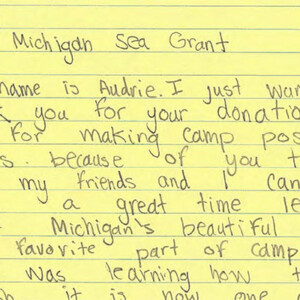 Michigan Sea Grant
name is Audrie. I just wan
k you for your donatio
for making camp pos
s. because of you t
my friends and I can
y a great time le
Michigan's beautiful
favorite part of camp
was learning how t
it is now one